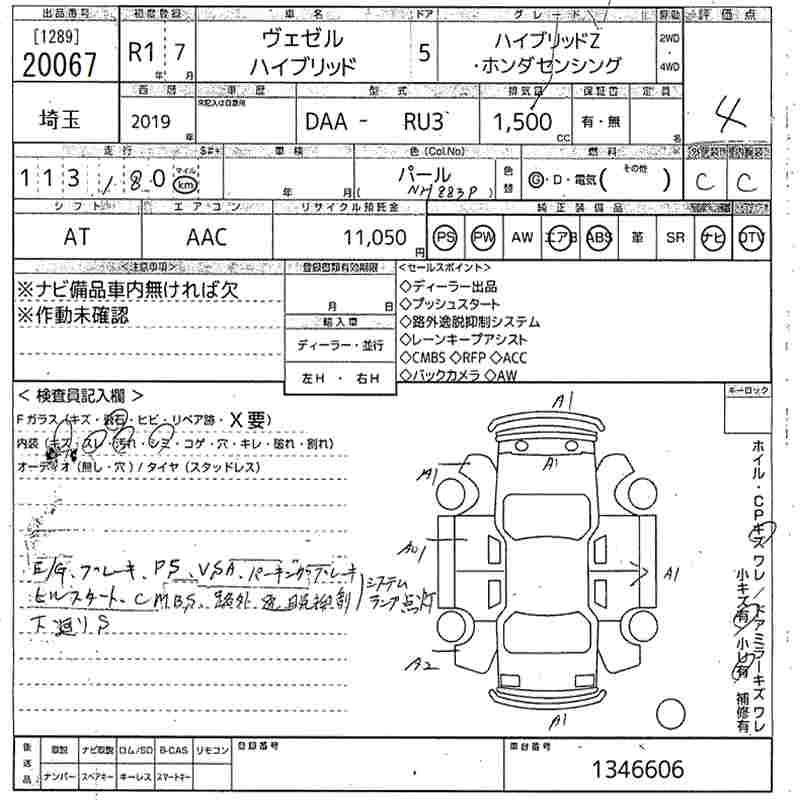 出品番号 初度登録 車名 ドア グレード 駆動 評価点
[1289]
20067
R1 年 7 月
ヴェゼル
ハイブリッド
5
ハイブリッドZ
・ホンダセンシング
2WD
・
4WD
4
西暦 車歴 型式 排気量 保証書 定員
未記入は自家用
埼玉
2019 年
DAA - RU3
1,500 cc
有・無
名
走行 S#+ 車検 色 (Col.No) 燃料 外装 内装
113,180 マイル km
年 月
パール
(NH883P)
色替
G・D・電気 (その他 )
C C
シフト エアコン リサイクル預託金 純正装備品
AT AAC 11,050 円
PS PW AW エアB ABS 革 SR ナビ DTV
<注意事項>
※ナビ備品車内無ければ欠
※作動未確認
登録書類有効期限
月 日
輸入車
ディーラー・並行
左H・右H
<セールスポイント>
◇ディーラー出品
◇プッシュスタート
◇路外逸脱抑制システム
◇レーンキープアシスト
◇CMBS ◇RFP ◇ACC
◇バックカメラ ◇AW
<検査員記入欄>
キーロック
Fガラス (キズ・飛石・ヒビ・リペア跡・X要)
内装 (キズ・スレ・汚れ・シミ・コゲ・穴・キレ・破れ・割れ)
オーディオ (無し・穴) / タイヤ (スタッドレス)
E/G、ブレーキ、PS、VSA、パーキングブレーキ
ヒルスタート、CMBS、路外逸脱抑制 システムランプ点灯
下廻りS
A1
A1
A1
A1
A01
A1
A2
A1
ホイル・CPキズ ワレ / ドアミラーキズ ワレ
小キズ有 / 小凹有 補修有
後送品
取説 ナビ取説 ロム/SD B-CAS リモコン
ナンバー スペアキー キーレス スマートキー
登録番号
車台番号
1346606